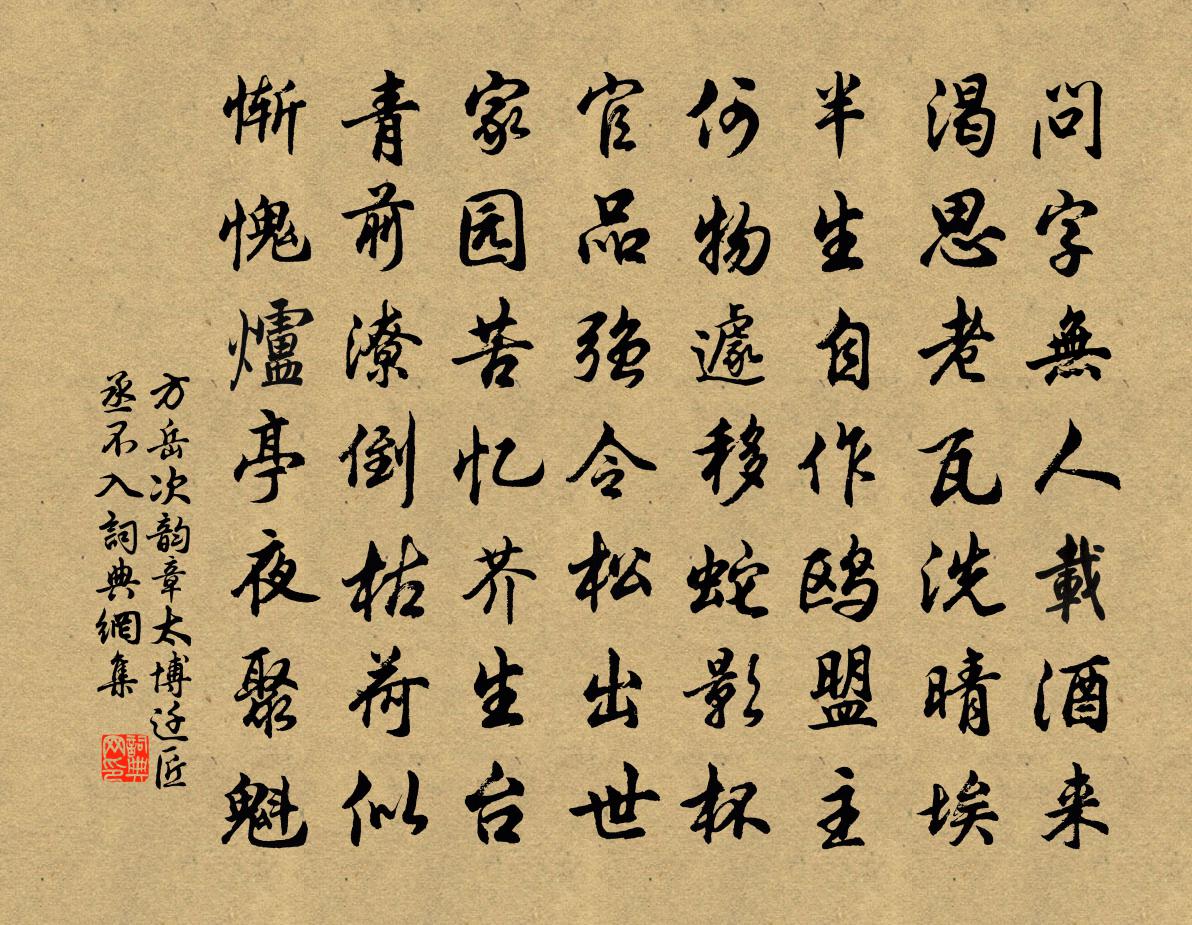 問字無人載酒来
渴思老瓦洗晴埃
半生自作鸥盟主
何物遽移蛇影杯
官品强令松出世
家园苦忆芥生台
青前潦倒枯荷似
惭愧爐亭夜聚魁
方岳次韵章太博迁匠
丞不入詞典網集
詞典
网印